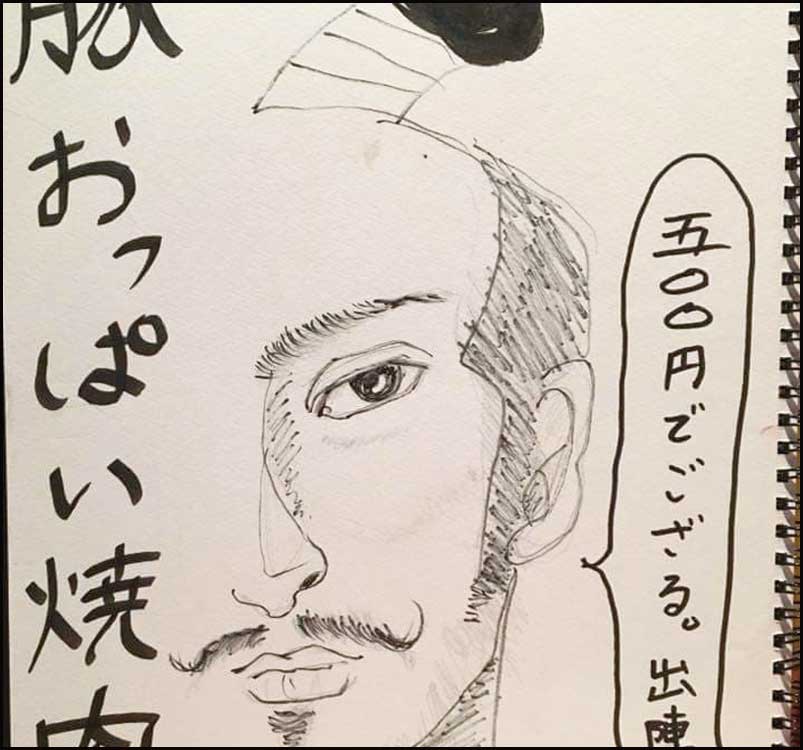 五〇〇円でござる。出陣
豚おっぱい焼肉